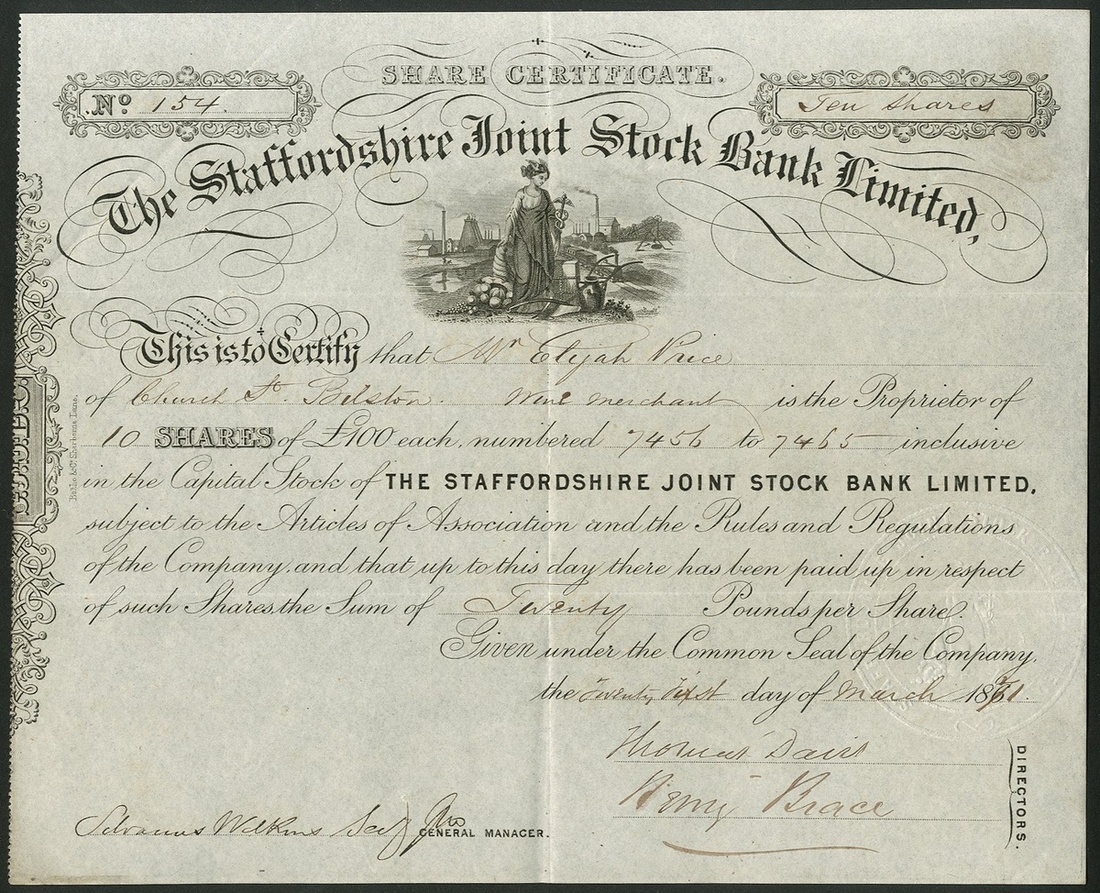 SHARE CERTIFICATE.
No 154.
Ten Shares
The Staffordshire Joint Stock Bank Limited,
This is to Certify that Mr Elijah Price
of Church St. Bilston. Wine Merchant is the Proprietor of
10 SHARES of £100 each, numbered 7456 to 7465 inclusive
in the Capital Stock of THE STAFFORDSHIRE JOINT STOCK BANK LIMITED,
subject to the Articles of Association and the Rules and Regulations
of the Company, and that up to this day there has been paid up in respect
of such Shares, the Sum of Twenty Pounds per Share.
Given under the Common Seal of the Company,
the Twenty First day of March 1871.
Thomas Davis
Henry Brace
DIRECTORS.
Silvanus Wilkins
GENERAL MANAGER.